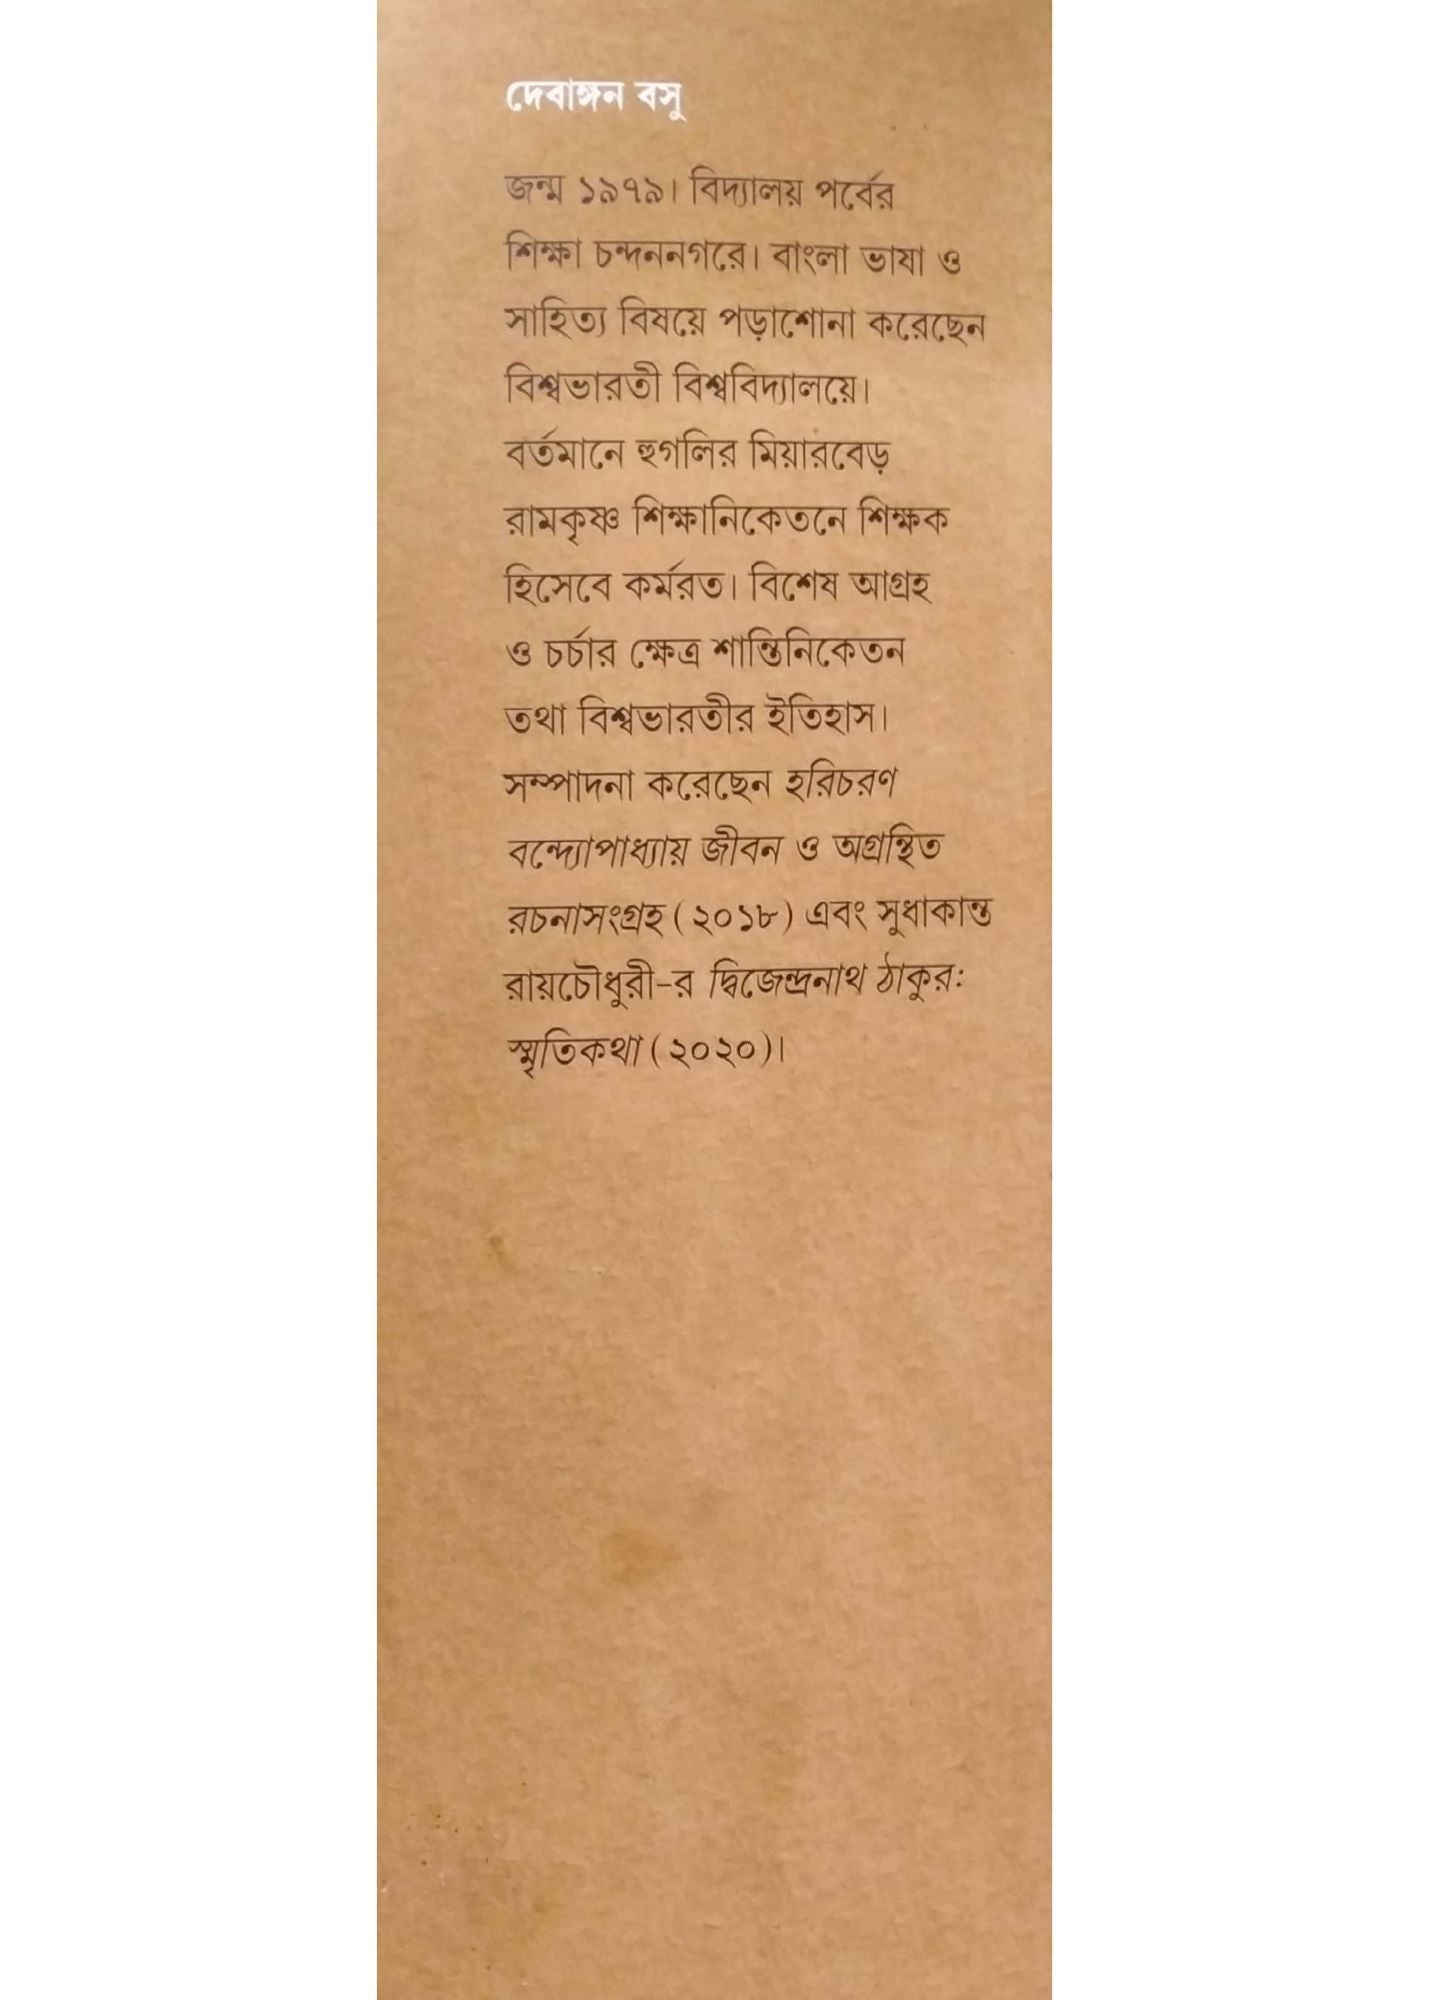 দেবাঙ্গন বসু
জন্ম ১৯৭৯। বিদ্যালয় পর্বের
শিক্ষা চন্দননগরে। বাংলা ভাষা ও
সাহিত্য বিষয়ে পড়াশোনা করেছেন
বিশ্বভারতী বিশ্ববিদ্যালয়ে।
বর্তমানে হুগলির মিয়ারবেড়
রামকৃষ্ণ শিক্ষানিকেতনে শিক্ষক
হিসেবে কর্মরত। বিশেষ আগ্রহ
ও চর্চার ক্ষেত্র শান্তিনিকেতন
তথা বিশ্বভারতীর ইতিহাস।
সম্পাদনা করেছেন হরিচরণ
বন্দ্যোপাধ্যায় জীবন ও অগ্রন্থিত
রচনাসংগ্রহ (২০১৮) এবং সুধাকান্ত
রায়চৌধুরী-র দ্বিজেন্দ্রনাথ ঠাকুর:
স্মৃতিকথা (২০২০)।